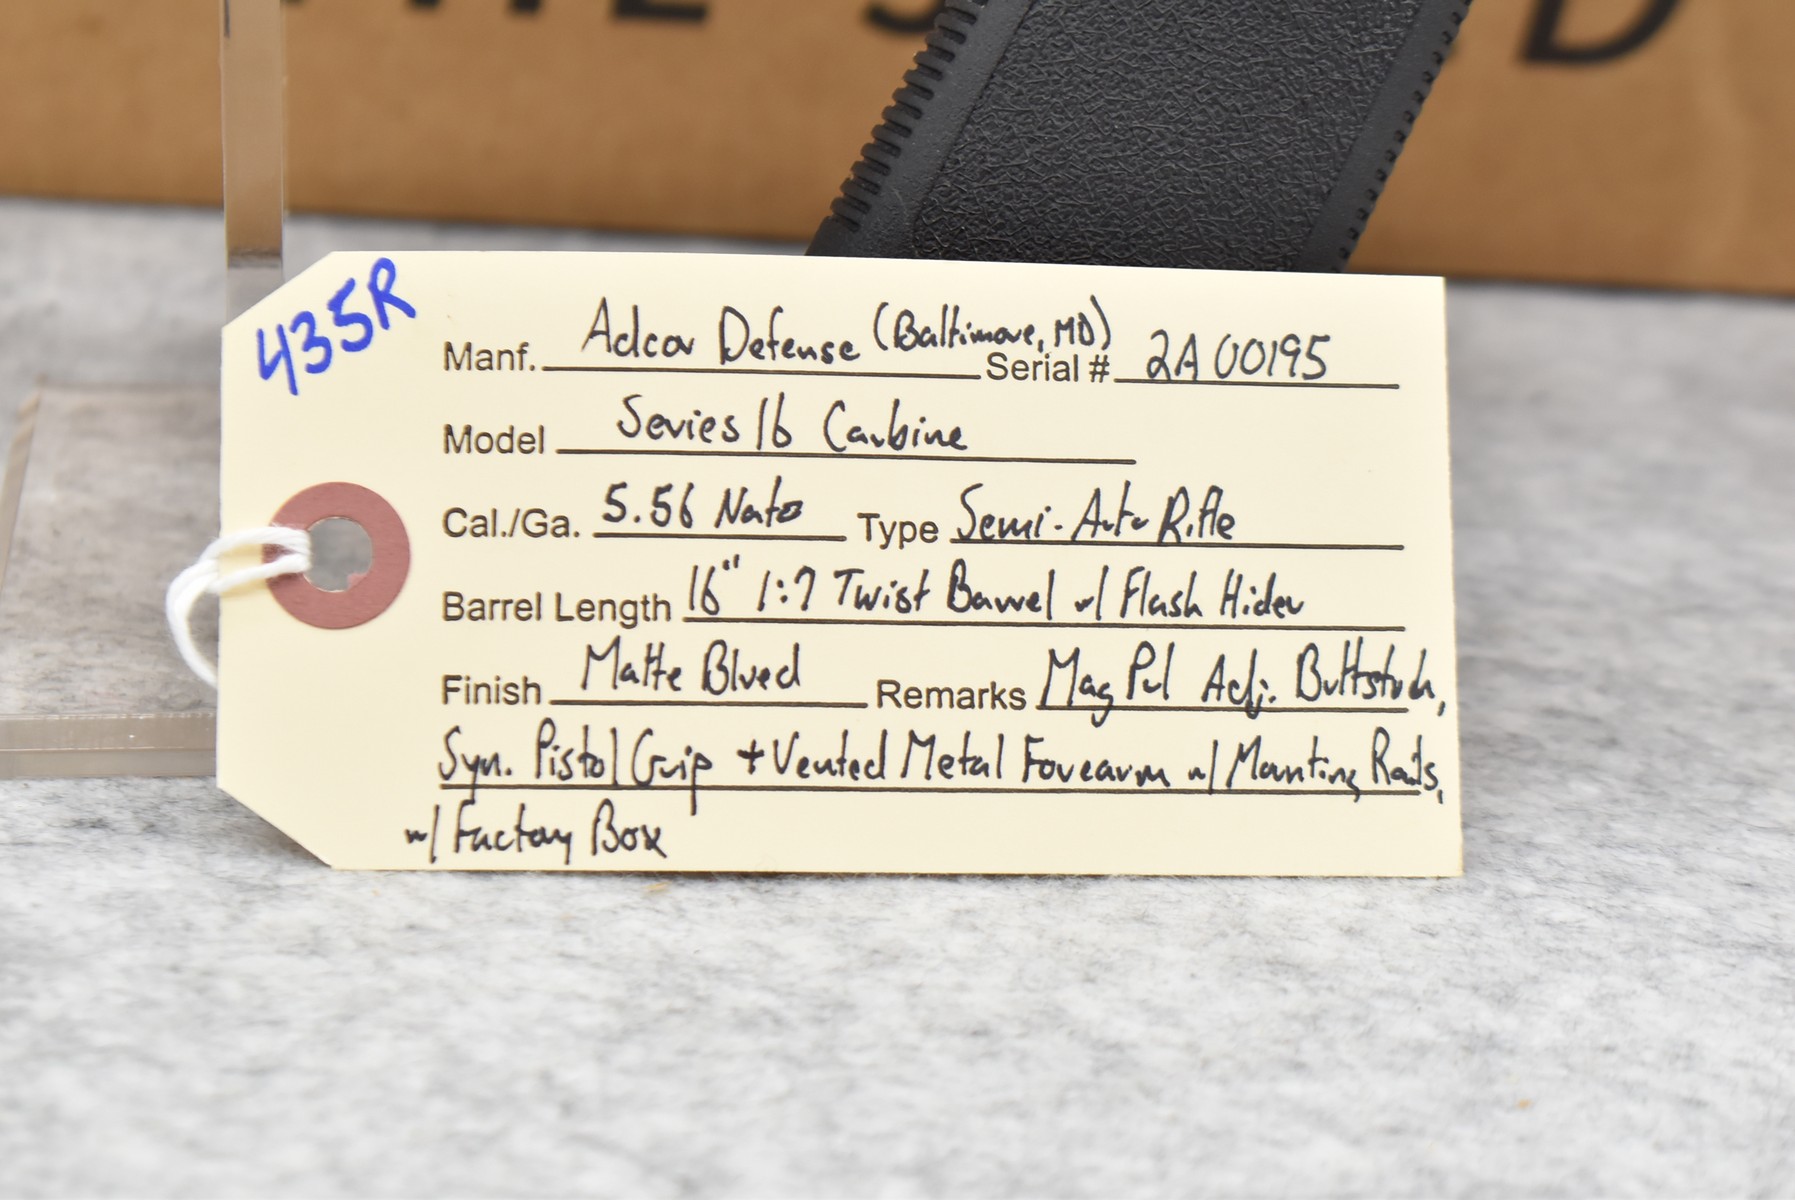 435R
Manf. Adcor Defense (Baltimore, MD) Serial # 2A00195
Model Series 16 Carbine
Cal./Ga. 5.56 Nato Type Semi-Auto Rifle
Barrel Length 16" 1:7 Twist Barrel w/ Flash Hider
Finish Matte Blued Remarks MagPul Adj. Buttstock,
Syn. Pistol Grip + Vented Metal Forearm w/ Mounting Rails,
w/ Factory Box